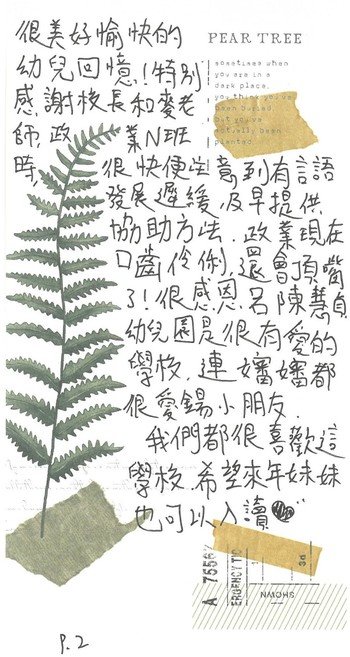 很美好愉快的
幼兒回憶!特別
感謝校長和麥老
師,政業N班
時,很快便注意到有言語
發展遲緩,及早提供
協助方法.政業現在
口齒伶俐,還會頂嘴
了!很感恩.呂陳慧貞
幼兒園是很有愛的
學校,連嬸嬸都
很愛錫小朋友.
我們都很喜歡這
學校.希望來年妹妹
也可以入讀
PEAR TREE
sometimes when
you are in a
dark place,
you think you've
been buried,
but you've
actually been
planted.
A 7556
EMERGENCY TIC
3d
SHOWN
P.2